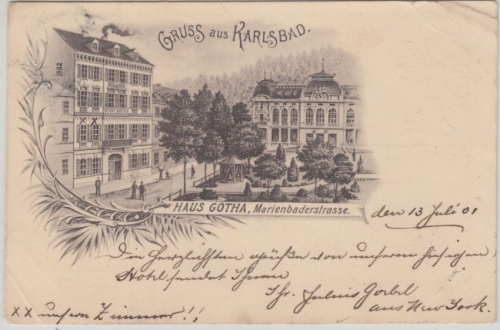 GRUSS aus KARLSBAD.
x x
HAUS GOTHA, Marienbaderstrasse.
den 13 Juli 01
Die herzlichsten Grüße von unserem hiesigen
Hotel sendet Ihnen
Ihr Julius Goebel
aus New York.
x x unsere Zimmer!!